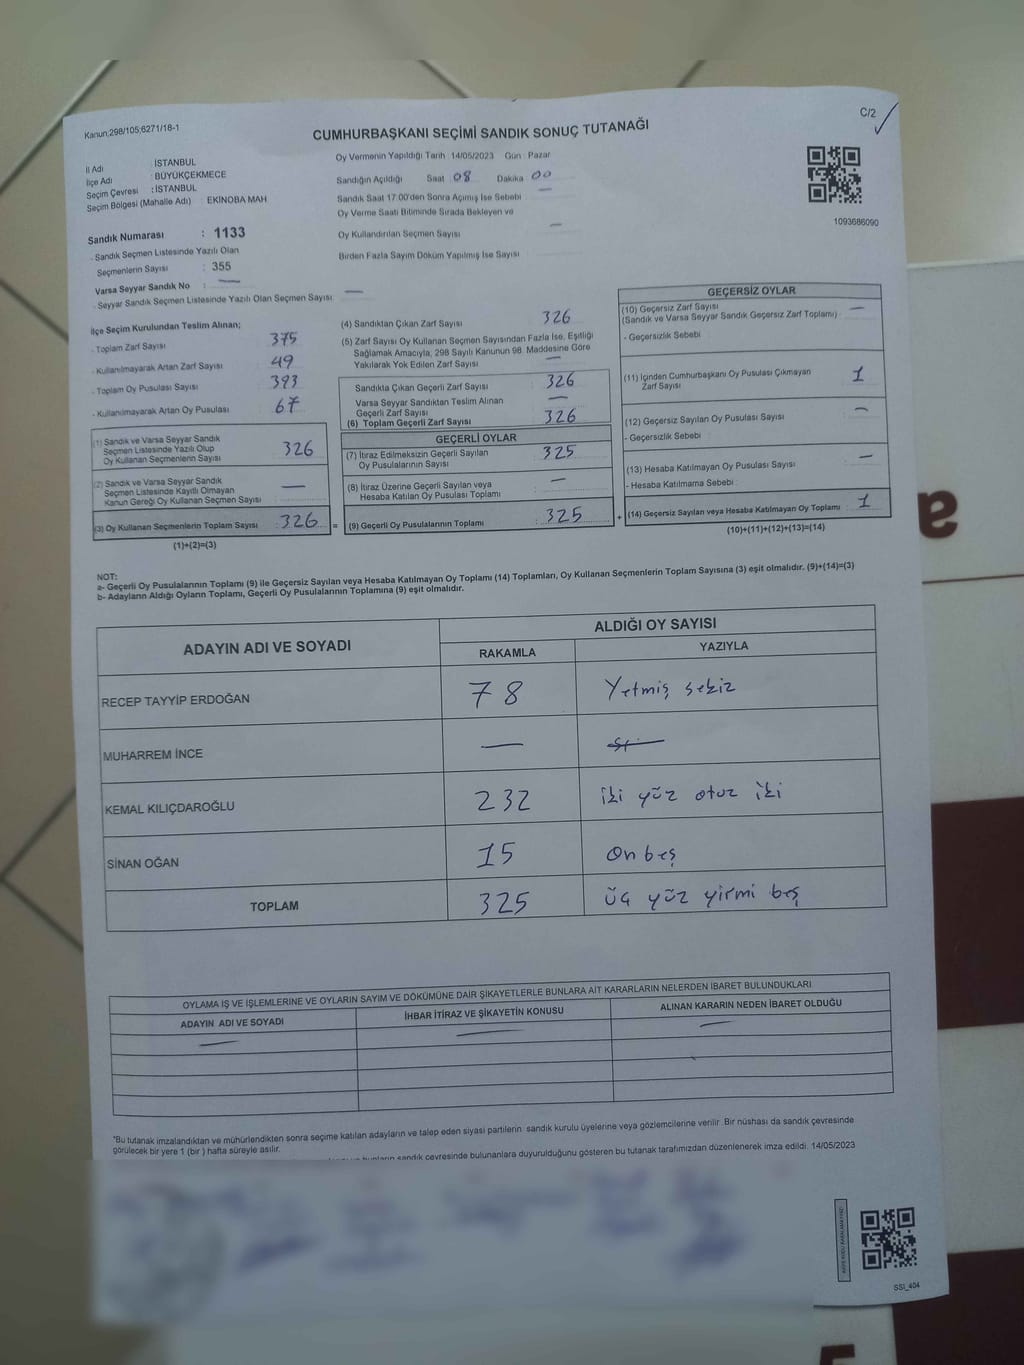 Kanun:298/105;6271/18-1
C/2
CUMHURBAŞKANI SEÇİMİ SANDIK SONUÇ TUTANAĞI
İl Adı : İSTANBUL
İlçe Adı : BÜYÜKÇEKMECE
Seçim Çevresi : İSTANBUL
Seçim Bölgesi (Mahalle Adı) : EKİNOBA MAH
Oy Vermenin Yapıldığı Tarih 14/05/2023 Gün : Pazar
Sandığın Açıldığı Saat 08 Dakika 00
Sandık Saat 17:00'den Sonra Açımış İse Sebebi —
Oy Verme Saati Bitiminde Sırada Bekleyen ve
Oy Kullandırılan Seçmen Sayısı —
Birden Fazla Sayım Döküm Yapılmış İse Sayısı
1093686090
Sandık Numarası : 1133
- Sandık Seçmen Listesinde Yazılı Olan
Seçmenlerin Sayısı : 355
Varsa Seyyar Sandık No : —
- Seyyar Sandık Seçmen Listesinde Yazılı Olan Seçmen Sayısı: —
İlçe Seçim Kurulundan Teslim Alınan;
- Toplam Zarf Sayısı 375
- Kullanılmayarak Artan Zarf Sayısı 49
- Toplam Oy Pusulası Sayısı 393
- Kullanılmayarak Artan Oy Pusulası 67
(1) Sandık ve Varsa Seyyar Sandık
Seçmen Listesinde Yazılı Olup
Oy Kullanan Seçmenlerin Sayısı 326
(2) Sandık ve Varsa Seyyar Sandık
Seçmen Listesinde Kayıtlı Olmayan
Kanun Gereği Oy Kullanan Seçmen Sayısı —
(3) Oy Kullanan Seçmenlerin Toplam Sayısı : 326 =
(1)+(2)=(3)
(4) Sandıktan Çıkan Zarf Sayısı 326
(5) Zarf Sayısı Oy Kullanan Seçmen Sayısından Fazla İse, Eşitliği
Sağlamak Amacıyla, 298 Sayılı Kanunun 98. Maddesine Göre
Yakılarak Yok Edilen Zarf Sayısı —
Sandıkta Çıkan Geçerli Zarf Sayısı 326
Varsa Seyyar Sandıktan Teslim Alınan
Geçerli Zarf Sayısı —
(6) Toplam Geçerli Zarf Sayısı 326
GEÇERLİ OYLAR
(7) İtiraz Edilmeksizin Geçerli Sayılan
Oy Pusulalarının Sayısı 325
(8) İtiraz Üzerine Geçerli Sayılan veya
Hesaba Katılan Oy Pusulası Toplamı —
(9) Geçerli Oy Pusulalarının Toplamı : 325 +
GEÇERSİZ OYLAR
(10) Geçersiz Zarf Sayısı
(Sandık ve Varsa Seyyar Sandık Geçersiz Zarf Toplamı) : —
- Geçersizlik Sebebi
(11) İçinden Cumhurbaşkanı Oy Pusulası Çıkmayan
Zarf Sayısı 1
(12) Geçersiz Sayılan Oy Pusulası Sayısı —
- Geçersizlik Sebebi
(13) Hesaba Katılmayan Oy Pusulası Sayısı —
- Hesaba Katılmama Sebebi :
(14) Geçersiz Sayılan veya Hesaba Katılmayan Oy Toplamı : 1
(10)+(11)+(12)+(13)=(14)
NOT:
a- Geçerli Oy Pusulalarının Toplamı (9) ile Geçersiz Sayılan veya Hesaba Katılmayan Oy Toplamı (14) Toplamları, Oy Kullanan Seçmenlerin Toplam Sayısına (3) eşit olmalıdır. (9)+(14)=(3)
b- Adayların Aldığı Oyların Toplamı, Geçerli Oy Pusulalarının Toplamına (9) eşit olmalıdır.
ADAYIN ADI VE SOYADI
ALDIĞI OY SAYISI
RAKAMLA YAZIYLA
RECEP TAYYİP ERDOĞAN 78 Yetmiş sekiz
MUHARREM İNCE —
KEMAL KILIÇDAROĞLU 232 iki yüz otuz iki
SİNAN OĞAN 15 On beş
TOPLAM 325 üç yüz yirmi beş
OYLAMA İŞ VE İŞLEMLERİNE VE OYLARIN SAYIM VE DÖKÜMÜNE DAİR ŞİKAYETLERLE BUNLARA AİT KARARLARIN NELERDEN İBARET BULUNDUKLARI
ADAYIN ADI VE SOYADI İHBAR İTİRAZ VE ŞİKAYETİN KONUSU ALINAN KARARIN NEDEN İBARET OLDUĞU
— — —
*Bu tutanak imzalandıktan ve mühürlendikten sonra seçime katılan adayların ve talep eden siyasi partilerin sandık kurulu üyelerine veya gözlemcilerine verilir. Bir nüshası da sandık çevresinde
görülecek bir yere 1 (bir) hafta süreyle asılır.
sandık çevresinde bulunanlara duyurulduğunu gösteren bu tutanak tarafımızdan düzenlenerek imza edildi. 14/05/2023
SSİ_404
a